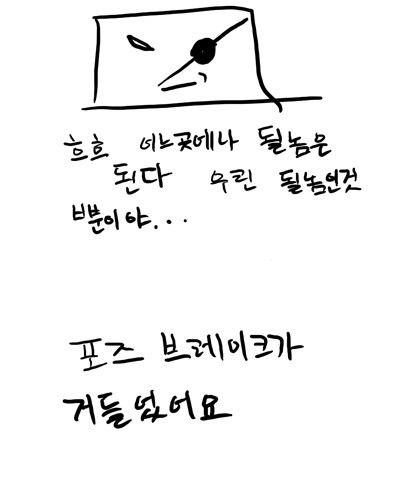 흐흐 어느곳에나 될놈은
된다 우린 될놈인것
뿐이야...
포즈 브레이크가
거들었어요